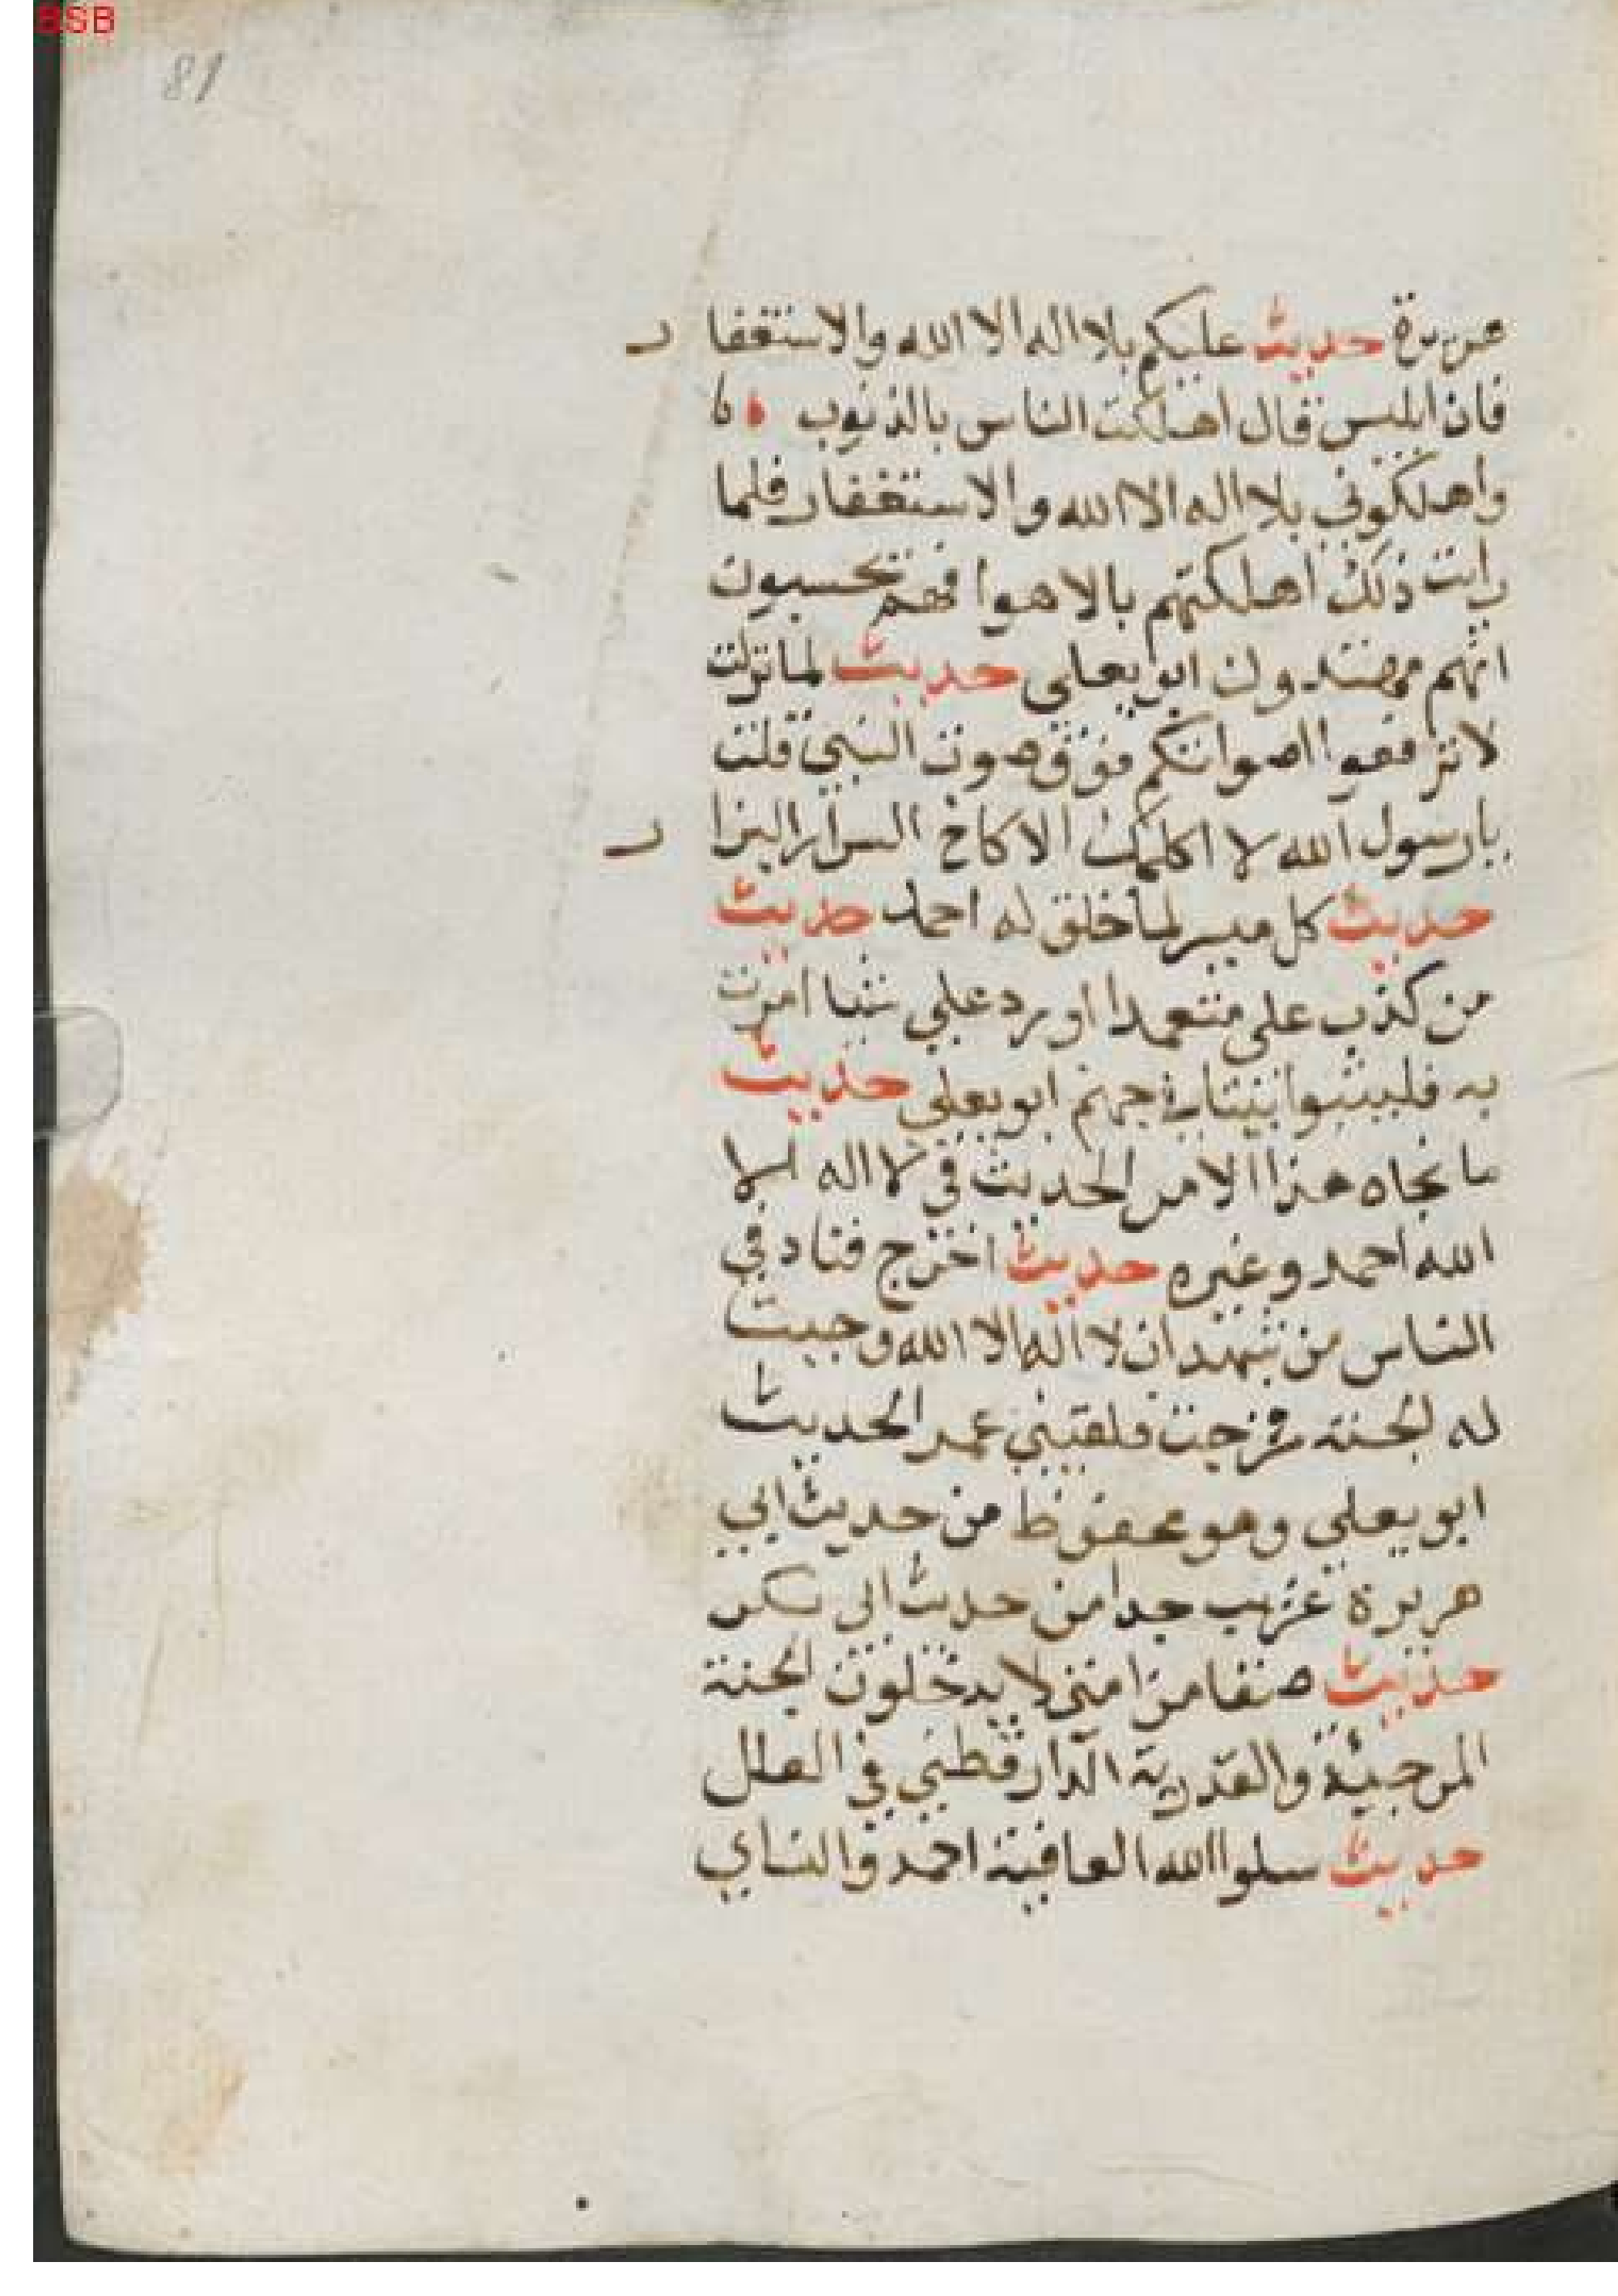 BSB
81
هريرة حديث عليكم بلا اله الا الله والاستغفار
فان ابليس قال اهلكت الناس بالذنوب
واهلكوني بلا اله الا الله والاستغفار فلما
رايت ذلك اهلكتهم بالاهوا فهم يحسبون
انهم مهتدون ابو يعلى حديث لما نزلت
لا ترفعوا اصواتكم فوق صوت النبي قلت
يا رسول الله لا اكلمك الا كاخ السرار البزار
حديث كل ميسر لما خلق له احمد حديث
من كذب علي متعمدا او رد علي شيا امرت
به فليتبوا بيتا في جهنم ابو يعلى حديث
ما نجاه هذا الامر الحديث في لا اله الا
الله احمد وغيره حديث اخرج فناد في
الناس من شهد ان لا اله الا الله وجبت
له الجنة فخرجت فلقيني عمر الحديث
ابو يعلى وهو محفوظ من حديث ابي
هريرة غريب جدا من حديث ابي بكر
حديث صنفا من امتي لا يدخلون الجنة
المرجيئة والقدرية الدارقطني في العلل
حديث سلوا الله العافية احمد والنساي